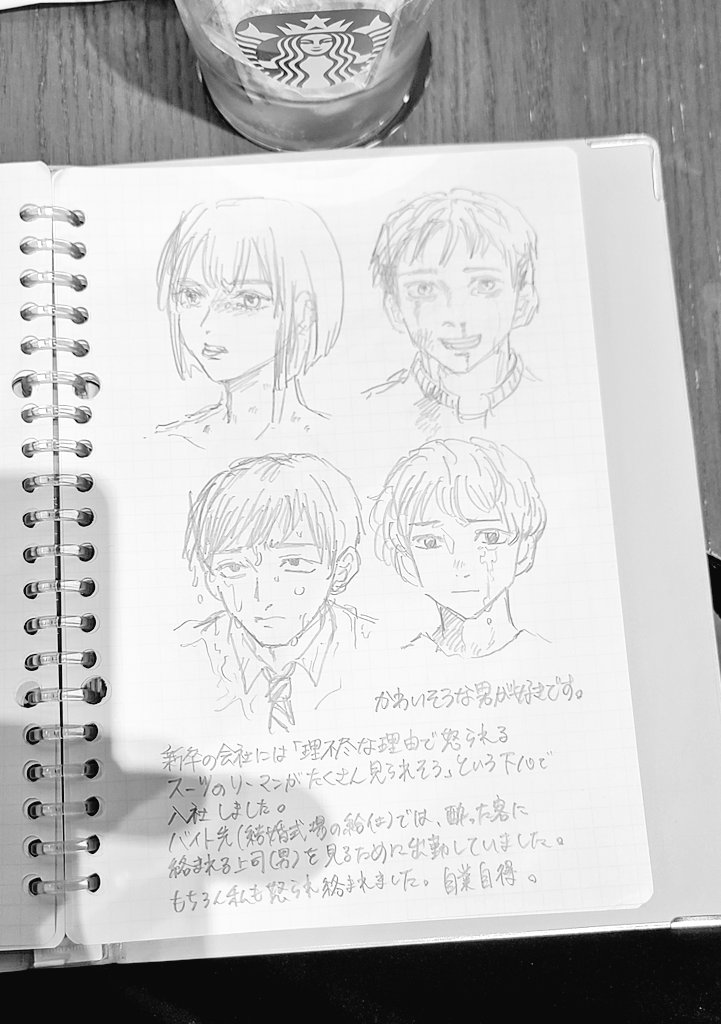 かわいそうな男が好きです。
新卒の会社には「理不尽な理由で怒られる
スーツのリーマンがたくさん見られそう」という下心で
入社しました。
バイト先(結婚式場の給仕)では、酔った客に
絡まれる上司(男)を見るために出勤していました。
もちろん私も怒られ絡まれました。自業自得。